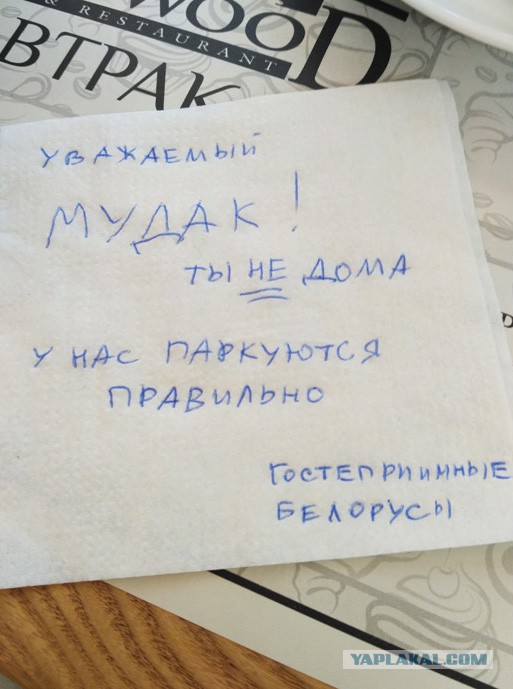 WOOD
& RESTAURANT
ВТРАК
УВАЖАЕМЫЙ
МУДАК!
ТЫ НЕ ДОМА
У НАС ПАРКУЮТСЯ
ПРАВИЛЬНО
ГОСТЕПРИИМНЫЕ
БЕЛОРУСЫ
YAPLAKAL.COM